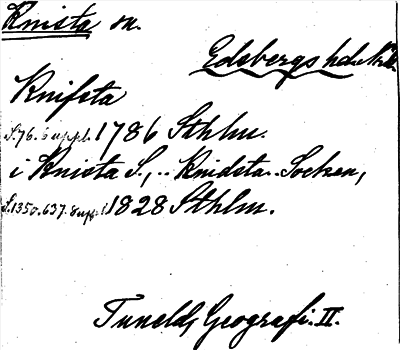 Knista sn.
Edsbergs hd. Nke.
Knifsta
S. 76. suppl. 1786 Sthlm.
i Knista S., .. Knidsta .. Socken,
S. 1350. 637. Suppl. 1828 Sthlm.
Tuneld, Geografi. II.